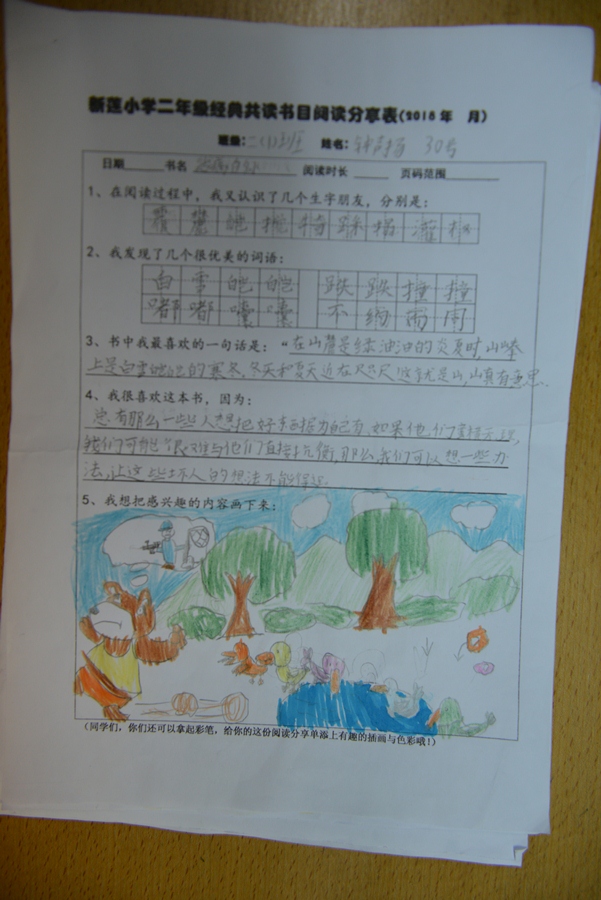 新莲小学二年级经典共读书目阅读分享表(2018年 月)
班级:二(1)班 姓名: 30号
日期 书名 阅读时长 页码范围
1、在阅读过程中,我又认识了几个生字朋友,分别是:
2、我发现了几个很优美的词语:
白雪皑皑 跌跌撞撞
嘟嘟囔囔 不绚而同
3、书中我最喜欢的一句话是:“在山麓是绿油油的炎夏时,山峰
上是白雪皑皑的寒冬,冬天和夏天近在咫尺,这就是山,山真有意思.
4、我很喜欢这本书,因为:
总有那么一些人想把好东西据为己有,如果他们蛮横无理,
我们可能很难与他们直接抗衡,那么,我们可以想一些办
法,让这些坏人的想法不能得逞.
5、我想把感兴趣的内容画下来:
(同学们,你们还可以拿起彩笔,给你的这份阅读分享单添上有趣的插画与色彩哦!)